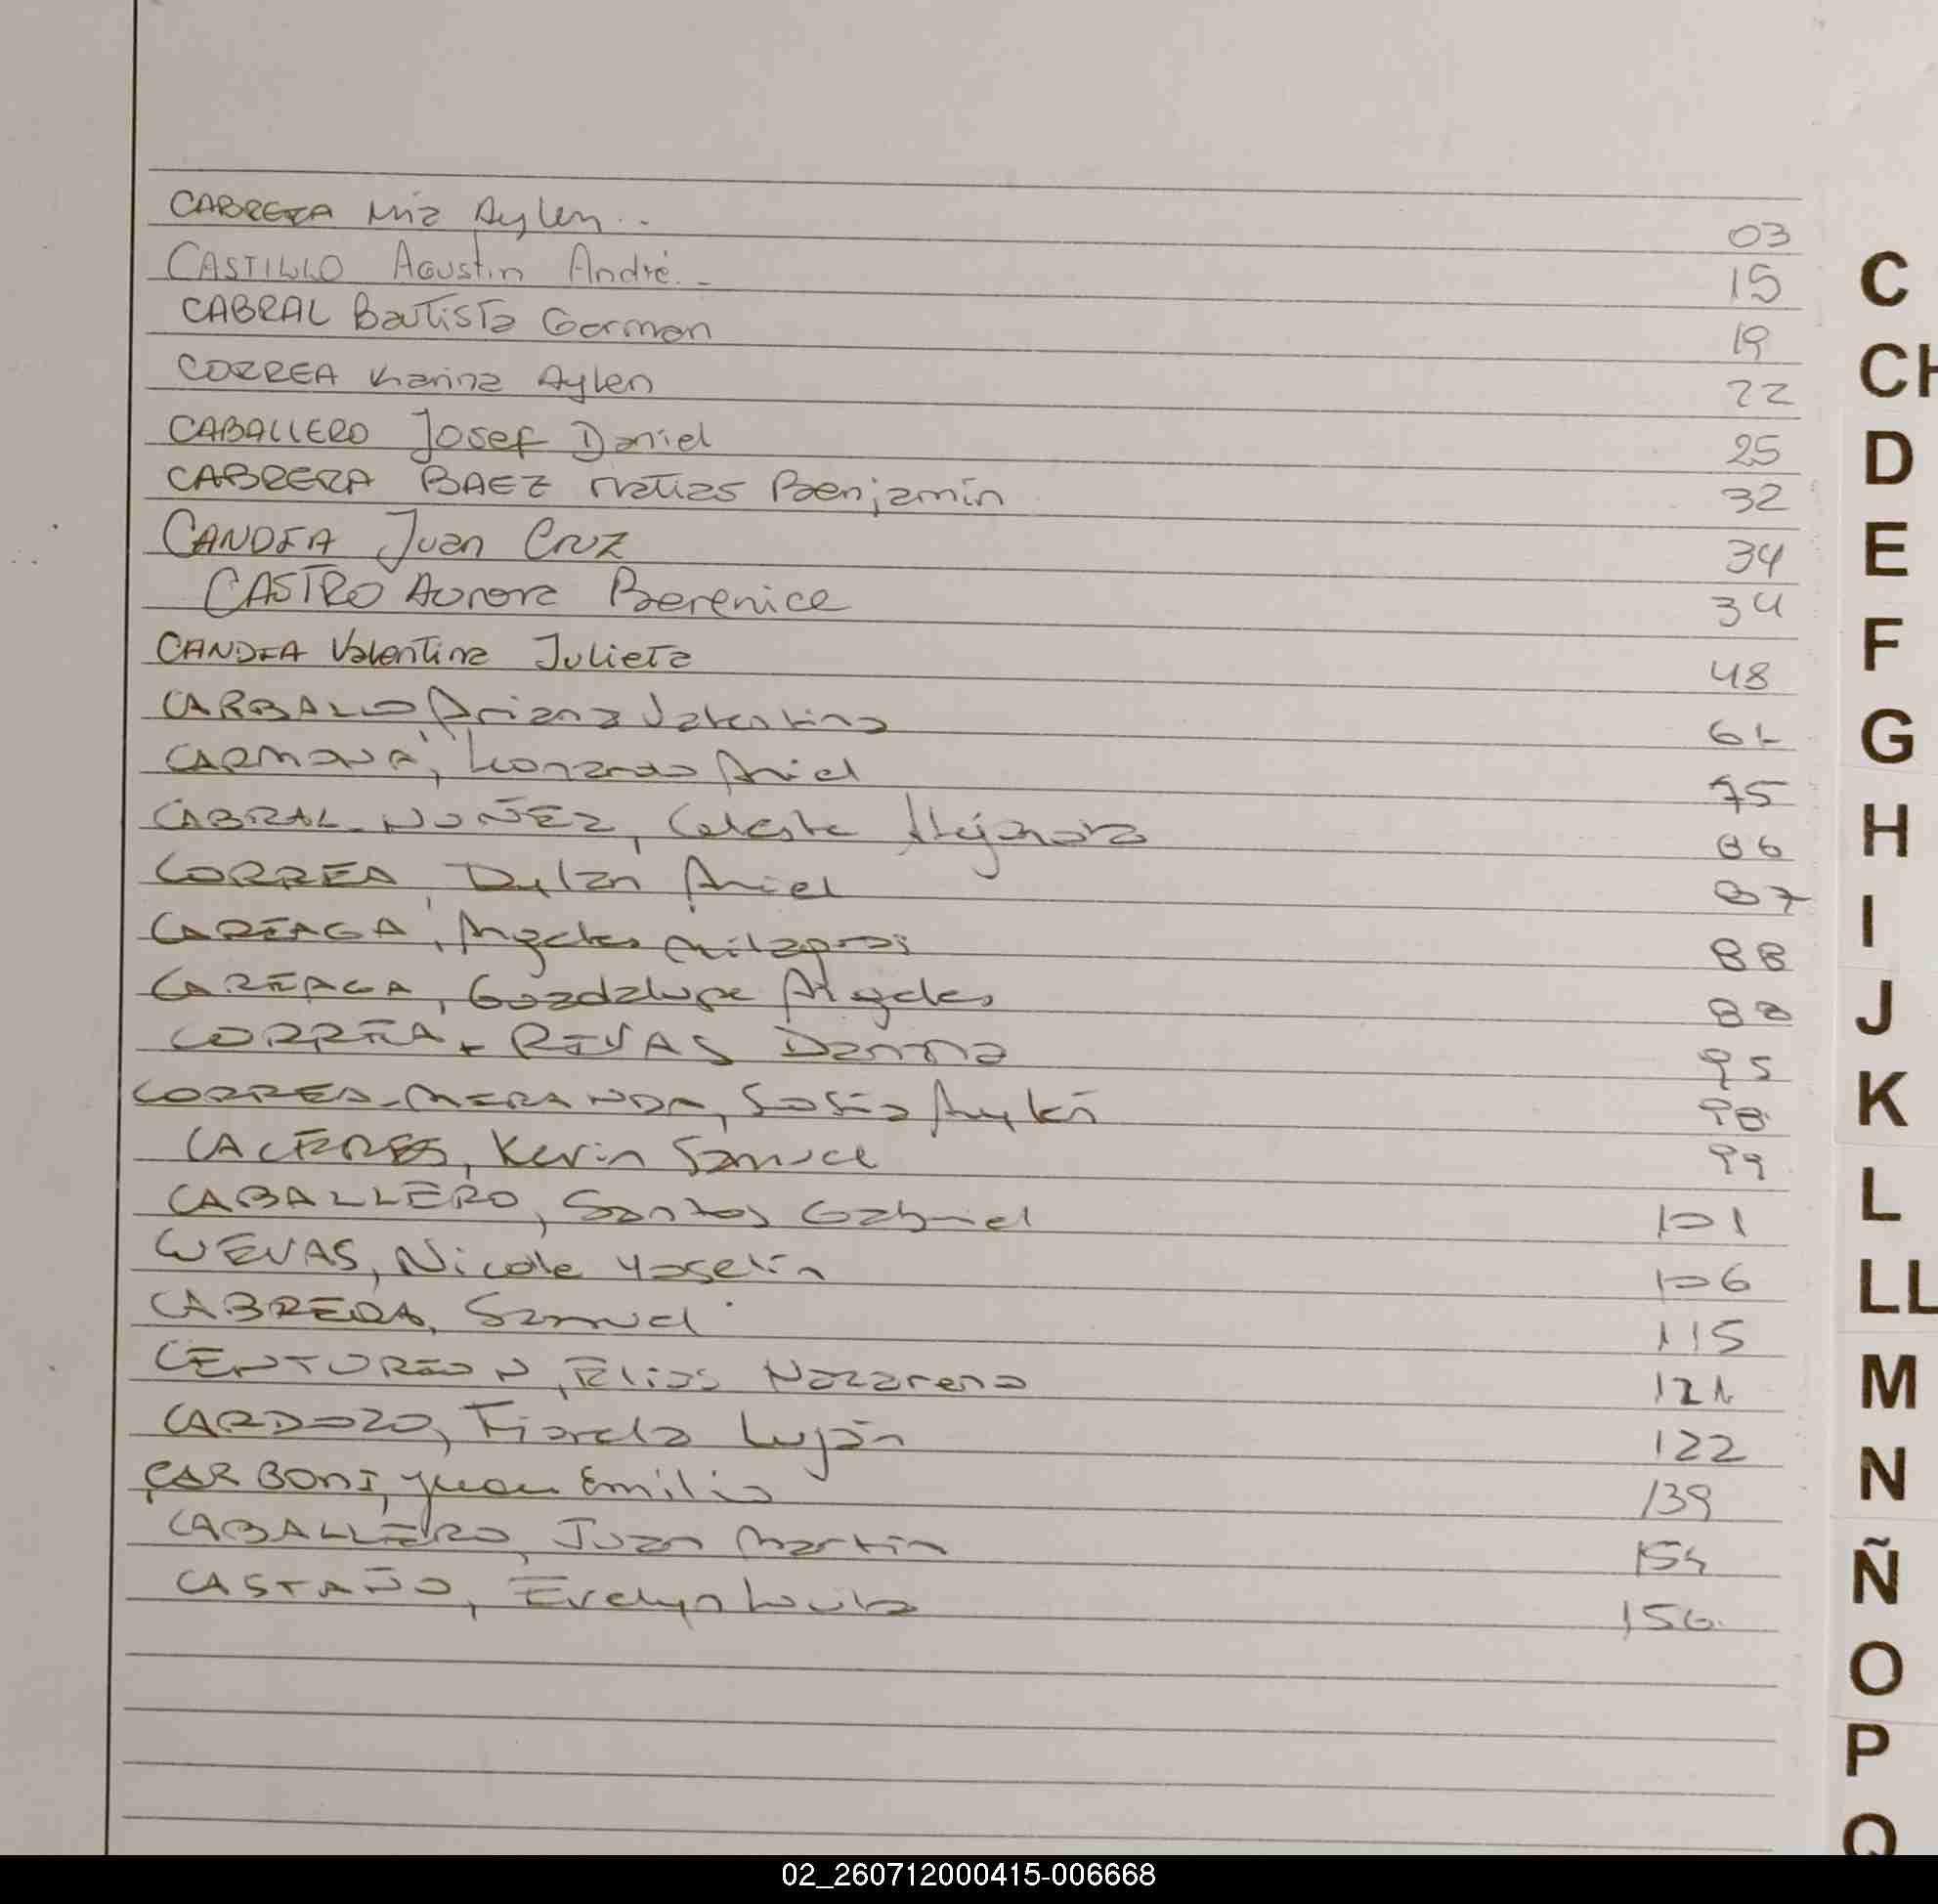 CABRERA Mia Aylen ..
03
CASTILLO Agustin André. _
15
CABRAL Bautista German
19
CORREA Karina Aylen
22
CABALLERO Josef Daniel
25
CABRERA BAEZ Matias Benjamín
32
CANDIA Juan Cruz
34
CASTRO Aurora Berenice
34
CANDIA Valentina Julieta
48
CARBALLO Ariana Valentina
CARMONA, Leonardo Ariel
75
CABRAL NUÑEZ, Celeste Alejandra
86
CORREA, Dylan Ariel
87
CAREAGA, Angeles Milagros
88
CAREAGA, Guadalupe Angeles
88
CORREA - RIVAS Danna
95
CORREA-MIRANDA, Sofia Aylén
98
CACERES, Kevin Samuel
99
CABALLERO, Santos Gabriel
101
CUEVAS, Nicole Yoselin
106
CABRERA, Samuel
115
CENTURION, Elias Nazareno
121
CARDOZO, Fiorela Luján
122
CARBONI, Juan Emilio
139
CABALLERO, Juan Martin
154
CASTAÑO, Evelyn Luila
156
C
CH
D
E
F
G
H
I
J
K
L
LL
M
N
Ñ
O
P
Q
02_260712000415-006668